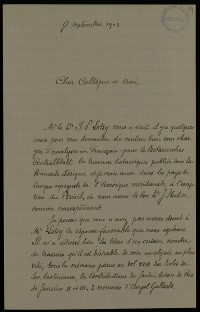 7 septembre 1902
Cher Collègue et Ami,
Mr le Dr J. P. Lotsy vous a écrit il y a quelques
mois pour vous demander de vouloir bien vous char-
ger d'analyser en français pour le Botanisches
Centralblatt, les travaux botaniques publiés dans la
et chez nous aussi dans les pays de
langue espagnole de l'Amérique méridionale, à l'excep-
tion du Brésil, où nous avons le bon Dr J. Huber
comme correspondant.
Je pense que vous n'avez pas encore donné à
Mr Lotsy la réponse favorable que nous espérons
Il m'a adressé hier les titres d'un certain nombre
de travaux qu'il est désirable de voir analysés au plus
vite, tous les mémoires parus au vol
les Contributions du Jardin botan. de Rio
de Janeiro II et III, 2 mémoires d'Angel Gallardo